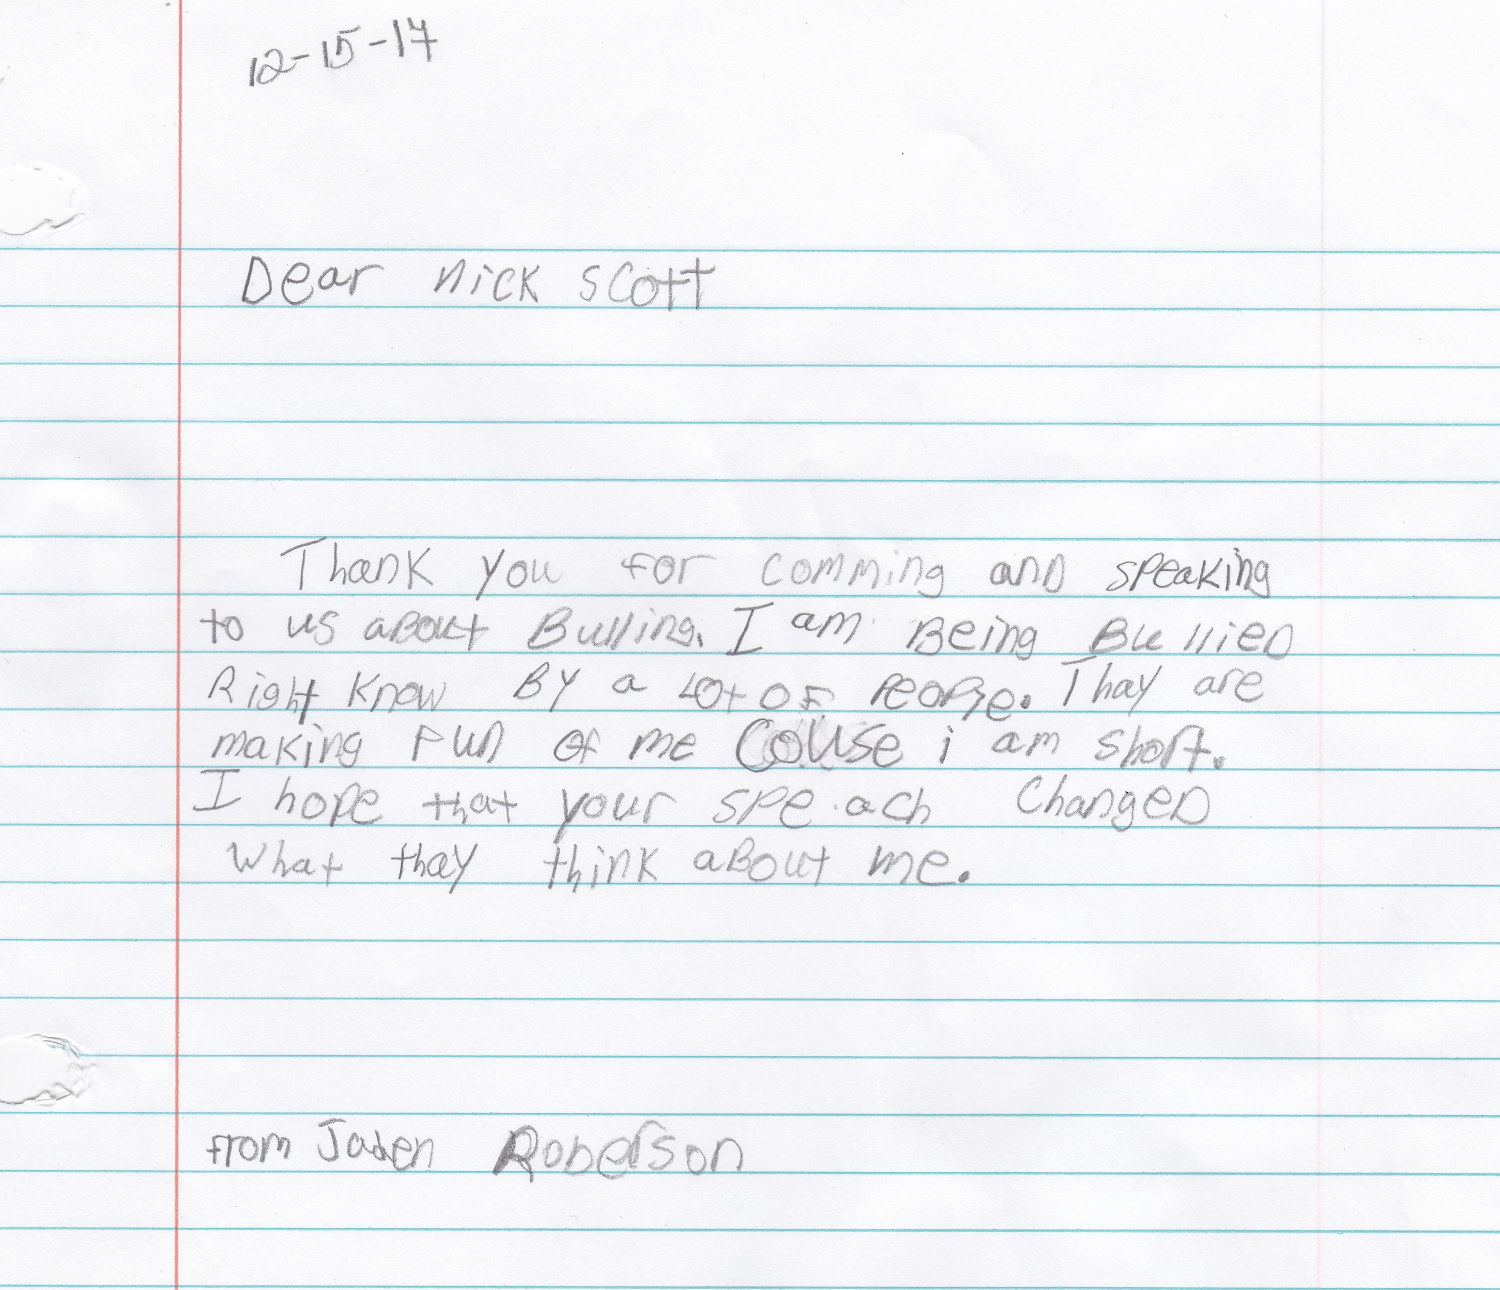 12-15-17
Dear Nick Scott
Thank you for comming and speaking
to us about Bulling. I am Being Bullied
Right Know By a Lot of People. Thay are
making Fun of me Couse i am short.
I hope that your speach Changed
What thay think about me.
from Jaden Roberson